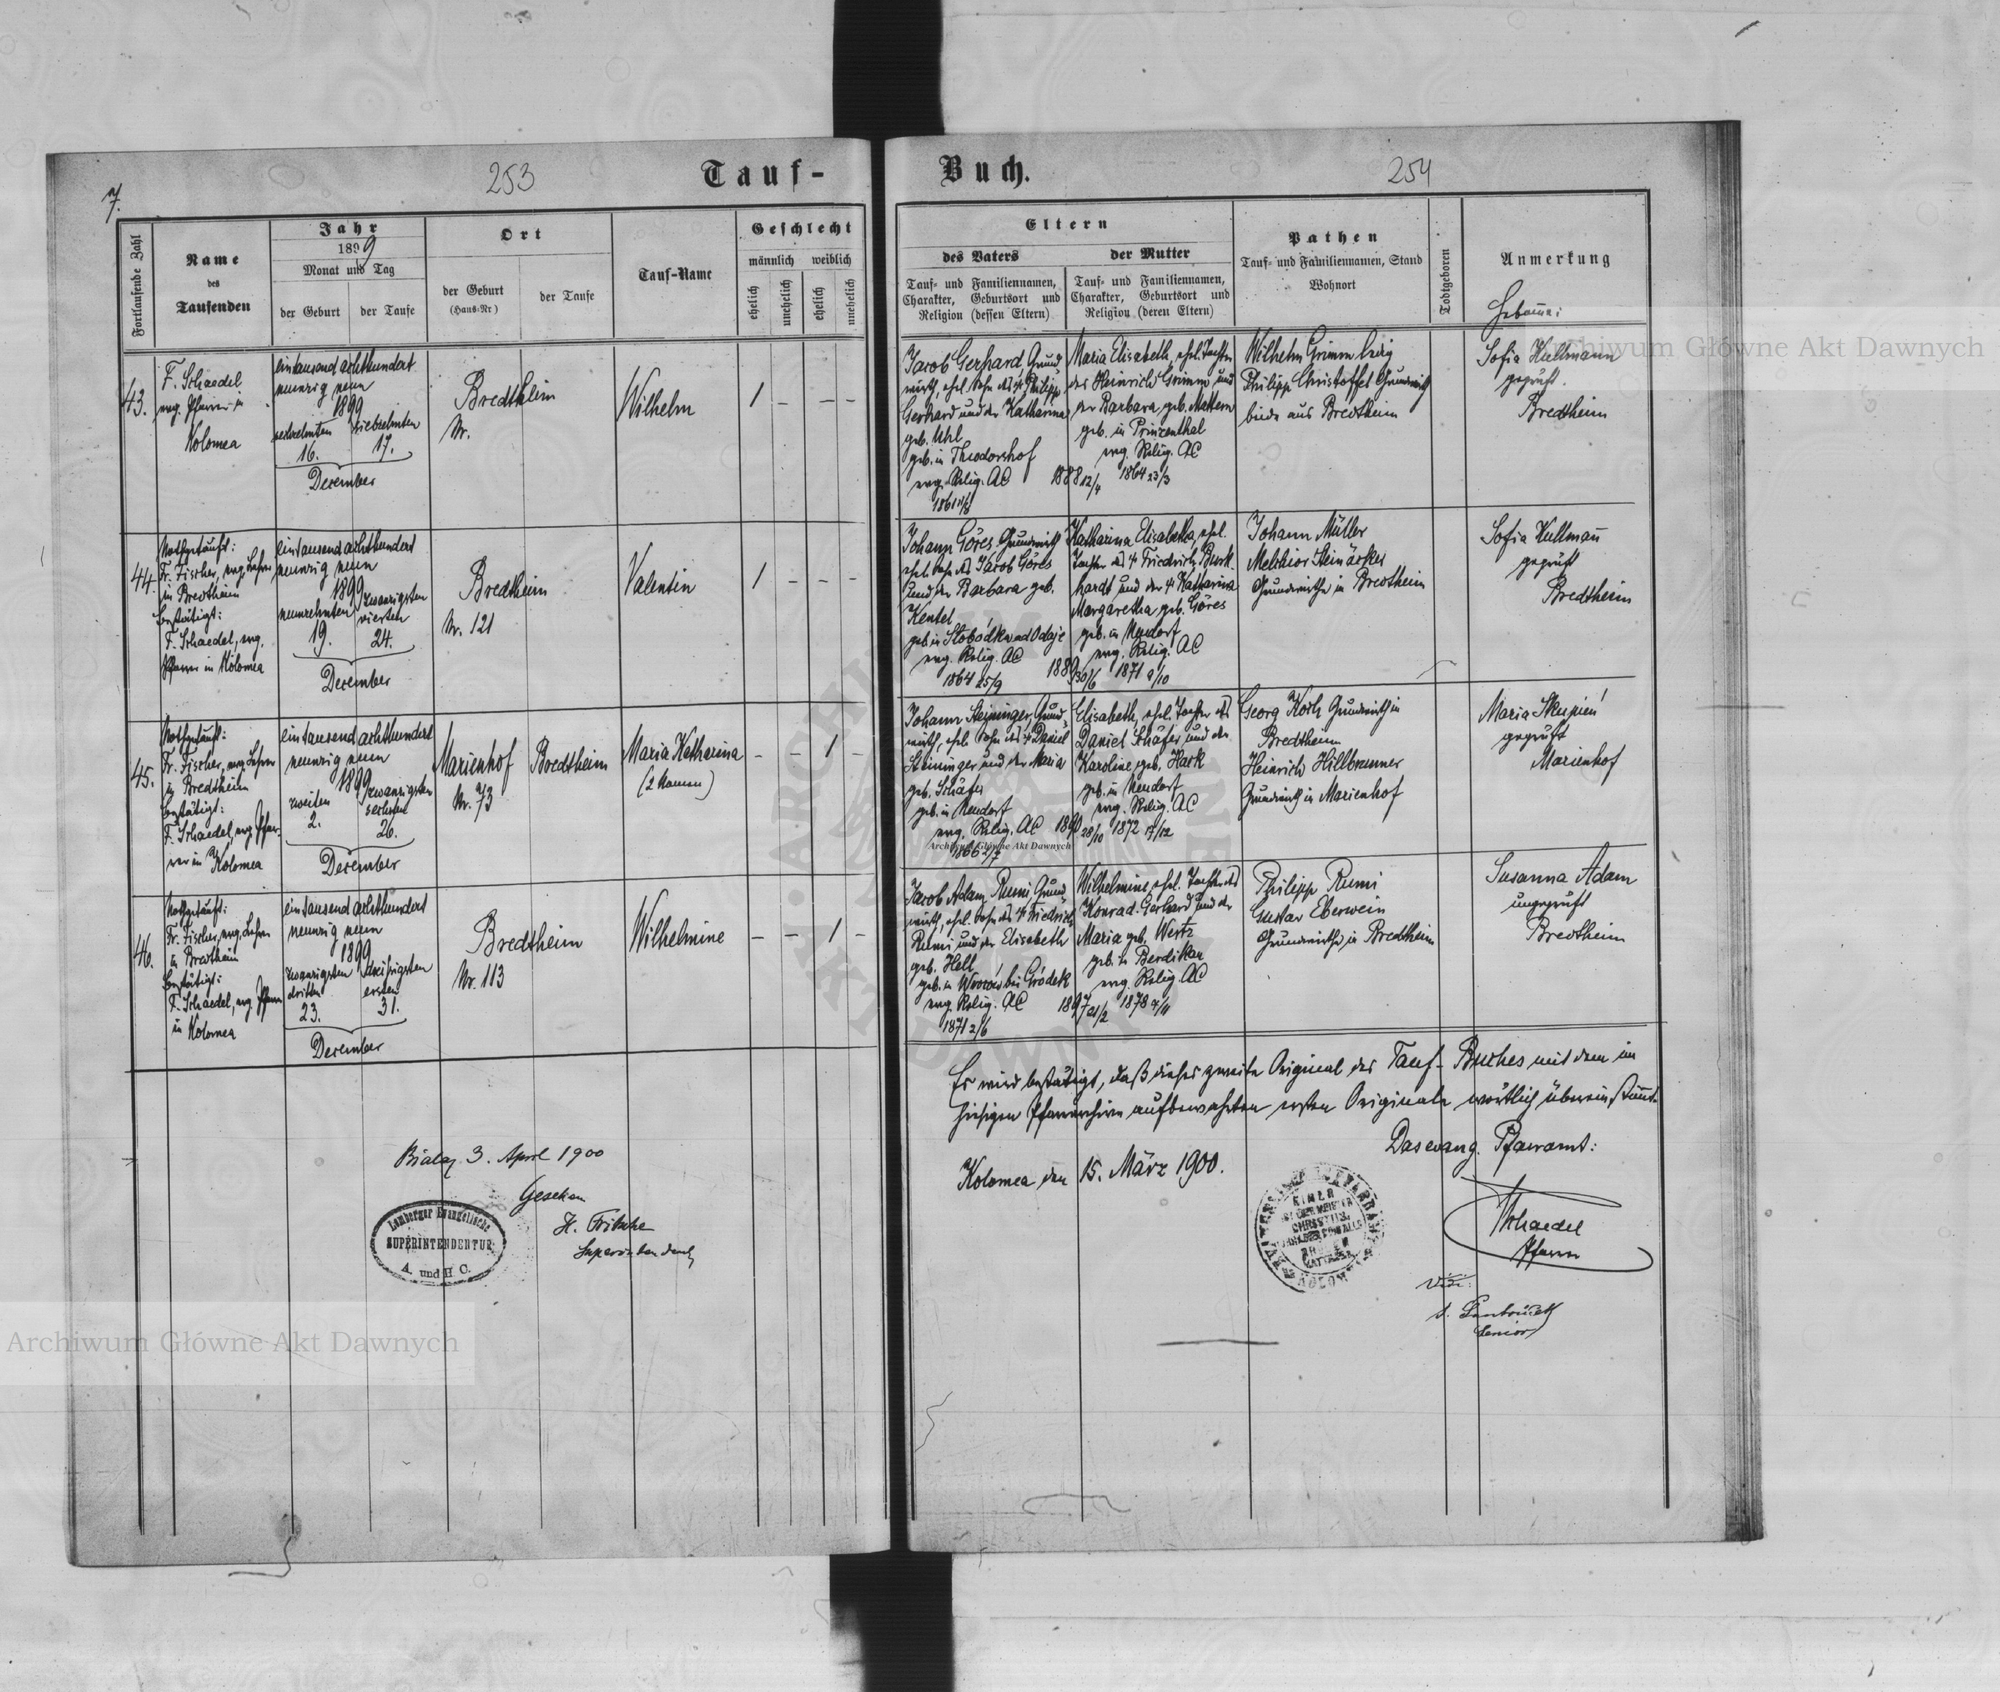 7.
253
Tauf-
Fortlaufende Zahl
Name
des
Taufenden
Jahr
1899
Monat und Tag
der Geburt
der Taufe
Ort
der Geburt
(Haus-Nr)
der Taufe
Tauf-Name
Geschlecht
männlich
weiblich
ehelich
unehelich
ehelich
unehelich
43.
F. Schaedel
evg. Pfarrer in
Kolomea
eintausend achthundert
neunzig neun
1899
sechzehnten
16.
siebzehnten
17.
December
Bredtheim
Nr.
Wilhelm
1 – – –
44.
Nothgetauft:
Fr. Fischer, evg. Lehrer
in Bredtheim
bestätigt:
F. Schaedel, evg.
Pfarrer in Kolomea
eintausend achthundert
neunzig neun
1899
neunzehnten
19.
zwanzigsten
vierten
24.
December
Bredtheim
Nr. 121
Valentin
1 – – –
45.
Nothgetauft:
Fr. Fischer, evg. Lehrer
in Bredtheim
bestätigt:
F. Schaedel, evg Pfar-
rer in Kolomea
eintausend achthundert
neunzig neun
1899
zweiten
2.
zwanzigsten
sechsten
26.
December
Marienhof
Bredtheim
Maria Katharina
(2 Namen)
– – 1 –
46.
Nothgetauft:
Fr. Fischer, evg. Lehrer
in Bredtheim
bestätigt:
F. Schaedel, evg Pfarrer
in Kolomea
eintausend achthundert
neunzig neun
1899
zwanzigsten
dritten
23.
dreißigsten
ersten
31.
December
Bredtheim
Nr. 113
Wilhelmine
– – 1 –
3. April 1900
Gesehen
H. Fritsche
Superintendent
Lemberger Evangelische
SUPERINTENDENTUR
A. und H C.
Buch.
254
Eltern
des Vaters
Tauf- und Familiennamen,
Charakter, Geburtsort und
Religion (dessen Eltern)
der Mutter
Tauf- und Familiennamen,
Charakter, Geburtsort und
Religion (deren Eltern)
Pathen
Tauf- und Familiennamen, Stand
Wohnort
Todtgeboren
Anmerkung
Jacob Gerhard, Grund
wirth, ehel. Sohn des † Philipp
Gerhard und der Katharina
geb. Uhl
geb. in Theodorshof
evg. Relig. AC
Maria Elisabeth, ehel. Tochter
des Heinrich Grimm und
der Barbara, geb. Mattern
geb. in Prinzenthal
evg. Relig. AC
1888 12/4
1864 23/3
Wilhelm Grimm ledig
Philipp Christoffel Grundwirth
beide aus Bredtheim
Sofia Kullmann
geprüft.
Bredtheim
Johann Göres, Grundwirth
ehel. Sohn des Jacob Göres
und der Barbara geb.
Kentel
geb. in Slobódka ad Odaje
evg. Relig. AC
1864 25/9
Katharina Elisabetha, ehel.
Tochter des † Friedrich Burk-
hardt und der † Katharina
Margaretha geb. Göres
geb. in Neudorf
evg. Relig. AC
1889 30/6
Johann Müller
Melchior Steinäcker
Grundwirthe in Bredtheim
Sofia Kullmañ
geprüft
Bredtheim
Johann Steininger, Grund-
wirth, ehel. Sohn des † Daniel
Steininger und der Maria
geb. Schäfer
geb. in Neudorf
evg. Relig. AC
Elisabeth, ehel. Tochter des
Daniel Schäfer und der
Karoline, geb. Hark
geb. in Neudorf
evg. Relig. AC
1872 17/12
Georg Koch Grundwirth in
Bredtheim
Heinrich Hillbrunner
Grundwirth in Marienhof
Maria Skupień
geprüft
Marienhof
Jacob Adam Rumi, Grund-
wirth, ehel. Sohn des † Friedrich
Rumi und der Elisabeth
geb. Hell
bei Gródek
evg. Relig. AC
1871 2/6
Wilhelmine, ehel. Tochter des
Konrad Gerhard und der
Maria geb. Wertz
geb. in Berdikau
evg. Relig. AC
1897 21/2
Philipp Rumi
Gustav Eberwein
Grundwirthe in Bredtheim
Susanna Adam
ungeprüft
Bredtheim
Es wird bestätigt, daß dieses zweite Original des Tauf-Buches mit dem im
hiesigen Pfarrarchive aufbewahrten ersten Originale wörtlich übereinstimmt.
Das evang. Pfarramt:
Kolomea den 15. März 1900.
FSchaedel
Pfarrer
Vidi:
Senior
Archiwum Główne Akt Dawnych
Archiwum Główne Akt Dawnych
Archiwum Główne Akt Dawnych